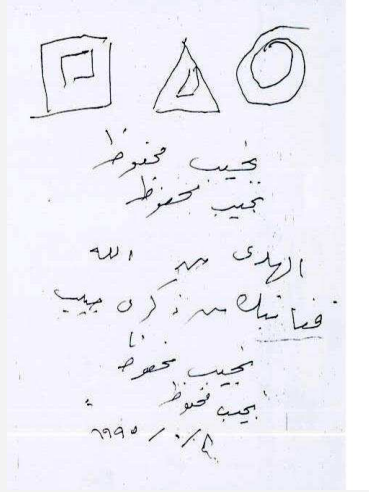 نجيب محفوظ
نجيب محفوظ
الهدى من الله
قفا نبك من ذكرى حبيب
نجيب محفوظ
نجيب محفوظ